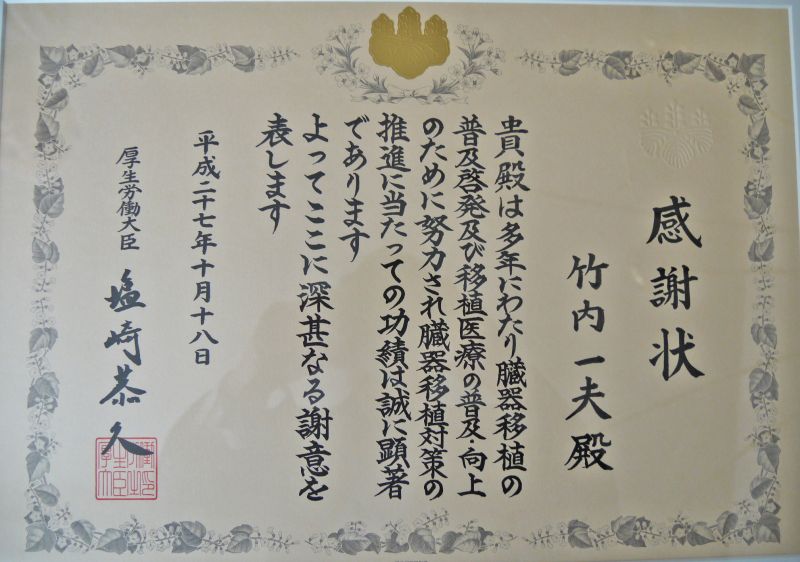 感謝状
竹内一夫殿
貴殿は多年にわたり臓器移植の
普及啓発及び移植医療の普及・向上
のために努力され臓器移植対策の
推進に当たっての功績は誠に顕著
であります
よってここに深甚なる謝意を
表します
平成二十七年十月十八日
厚生労働大臣 塩崎恭久